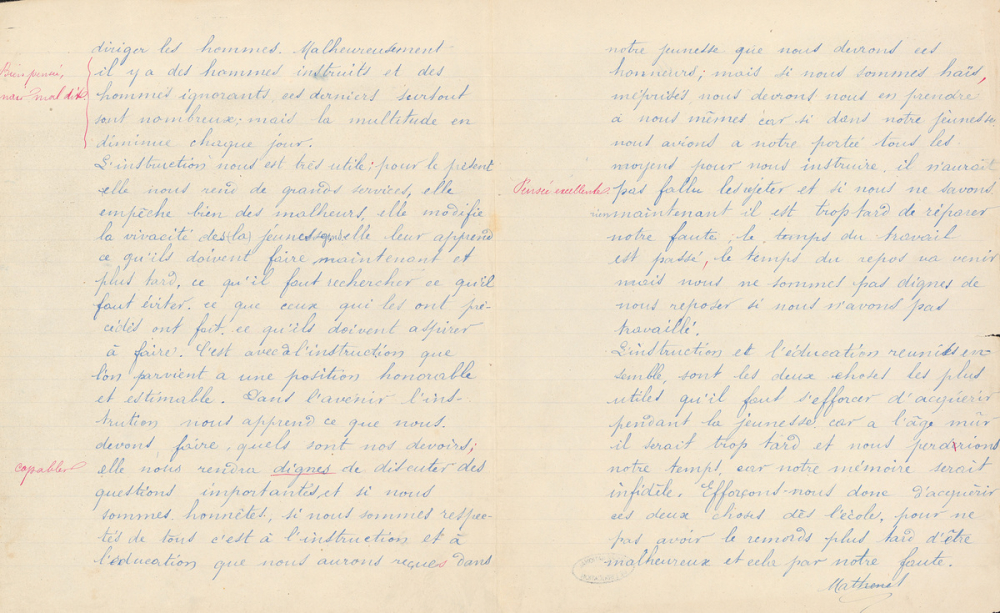 diriger les hommes. Malheureusement
Bien pensé,
mais mal dit.
il y a des hommes instruits et des
hommes ignorants, ces derniers surtout
sont nombreux; mais la multitude en
diminue chaque jour.
L'instruction nous est très utile; pour le présent
elle nous rend de grands services, elle
empêche bien des malheurs, elle modifie
la vivacité des (la) jeunesse, elle leur apprend
ce qu'ils doivent faire maintenant et
plus tard, ce qu'il faut rechercher ce qu'il
faut éviter. ce que ceux qui les ont pré-
cédés ont fait, ce qu'ils doivent aspirer
à faire. C'est avec à l'instruction que
l'on parvient a une position honorable
et estimable. Dans l'avenir l'ins-
truction nous apprend ce que nous
devons faire, quels sont nos devoirs;
capables
elle nous rendra dignes de discuter des
questions importantes, et si nous
sommes honnêtes, si nous sommes respec-
tés de tous c'est à l'instruction et à
l'éducation que nous aurons reçues dans
notre jeunesse que nous devrons ces
honneurs; mais si nous sommes haïs,
méprisés, nous devrons nous en prendre
à nous mêmes car si dans notre jeunesse
nous avions a notre portée tous les
moyens pour nous instruire, il n'aurait
Pensée excellente
pas fallu les rejeter et si nous ne savons
rien maintenant il est trop tard de réparer
notre faute; le temps du travail
est passé, le temps du repos va venir
mais nous ne sommes pas dignes de
nous reposer si nous n'avons pas
travaillé.
L'instruction et l'éducation réunies en-
semble, sont les deux choses les plus
utiles qu'il faut s'efforcer d'acquérir
pendant la jeunesse, car a l'âge mûr
il serait trop tard et nous perdrions
notre temps, car notre mémoire serait
infidèle. Efforçons-nous donc d'acquérir
ces deux choses dès l'école, pour ne
pas avoir le remords plus tard d'être
malheureux et cela par notre faute.